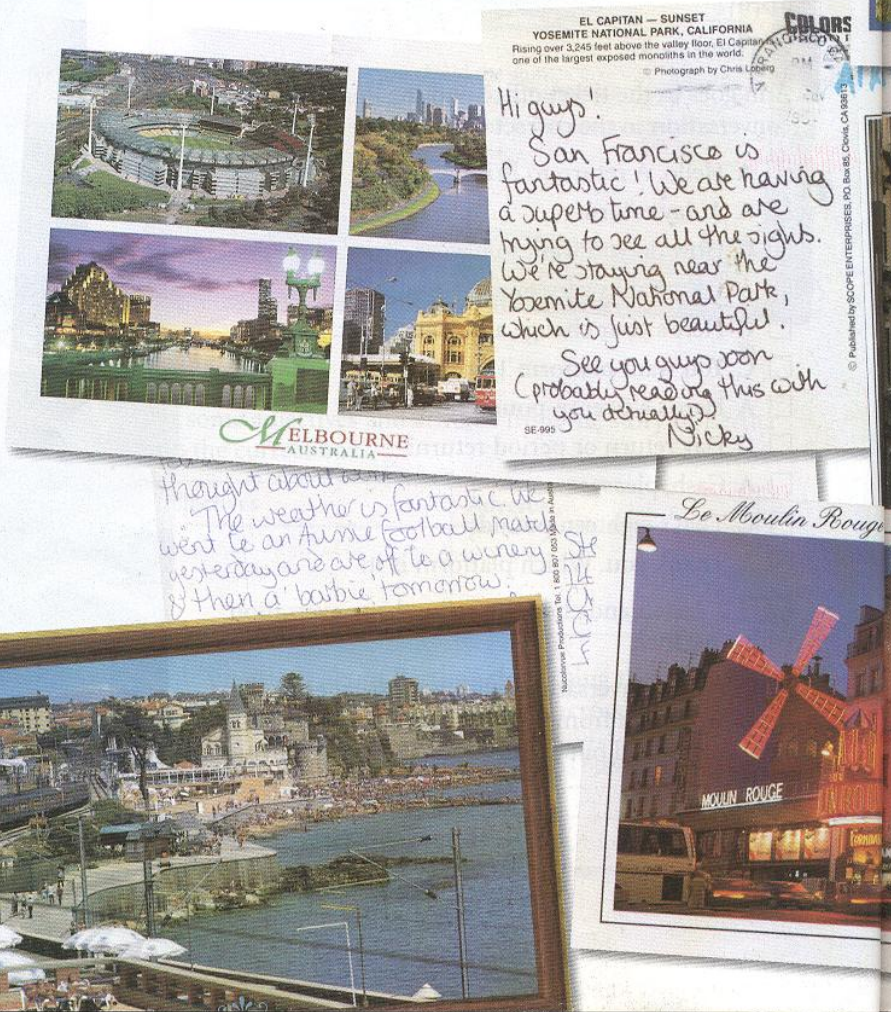 EL CAPITAN — SUNSET
YOSEMITE NATIONAL PARK, CALIFORNIA
Rising over 3,245 feet above the valley floor, El Capitan
one of the largest exposed monoliths in the world.
© Photograph by Chris Loberg
COLORS
Hi guys!
San Francisco is
fantastic! We are having
a superb time - and are
trying to see all the sights.
We're staying near the
Yosemite National Park,
which is just beautiful.
See you guys soon
(probably reading this with
you actually!)
Nicky
SE-995
© Published by SCOPE ENTERPRISES, P.O. Box 85, Clovis, CA 93613
MELBOURNE
AUSTRALIA
thought about
The weather is fantastic. We
went to an Aussie football match
yesterday and are off to a winery
& then a 'barbie' tomorrow.
Nucolorvue Productions Tel. 1 800 807 053 Made in
Le Moulin Rouge
MOULIN ROUGE